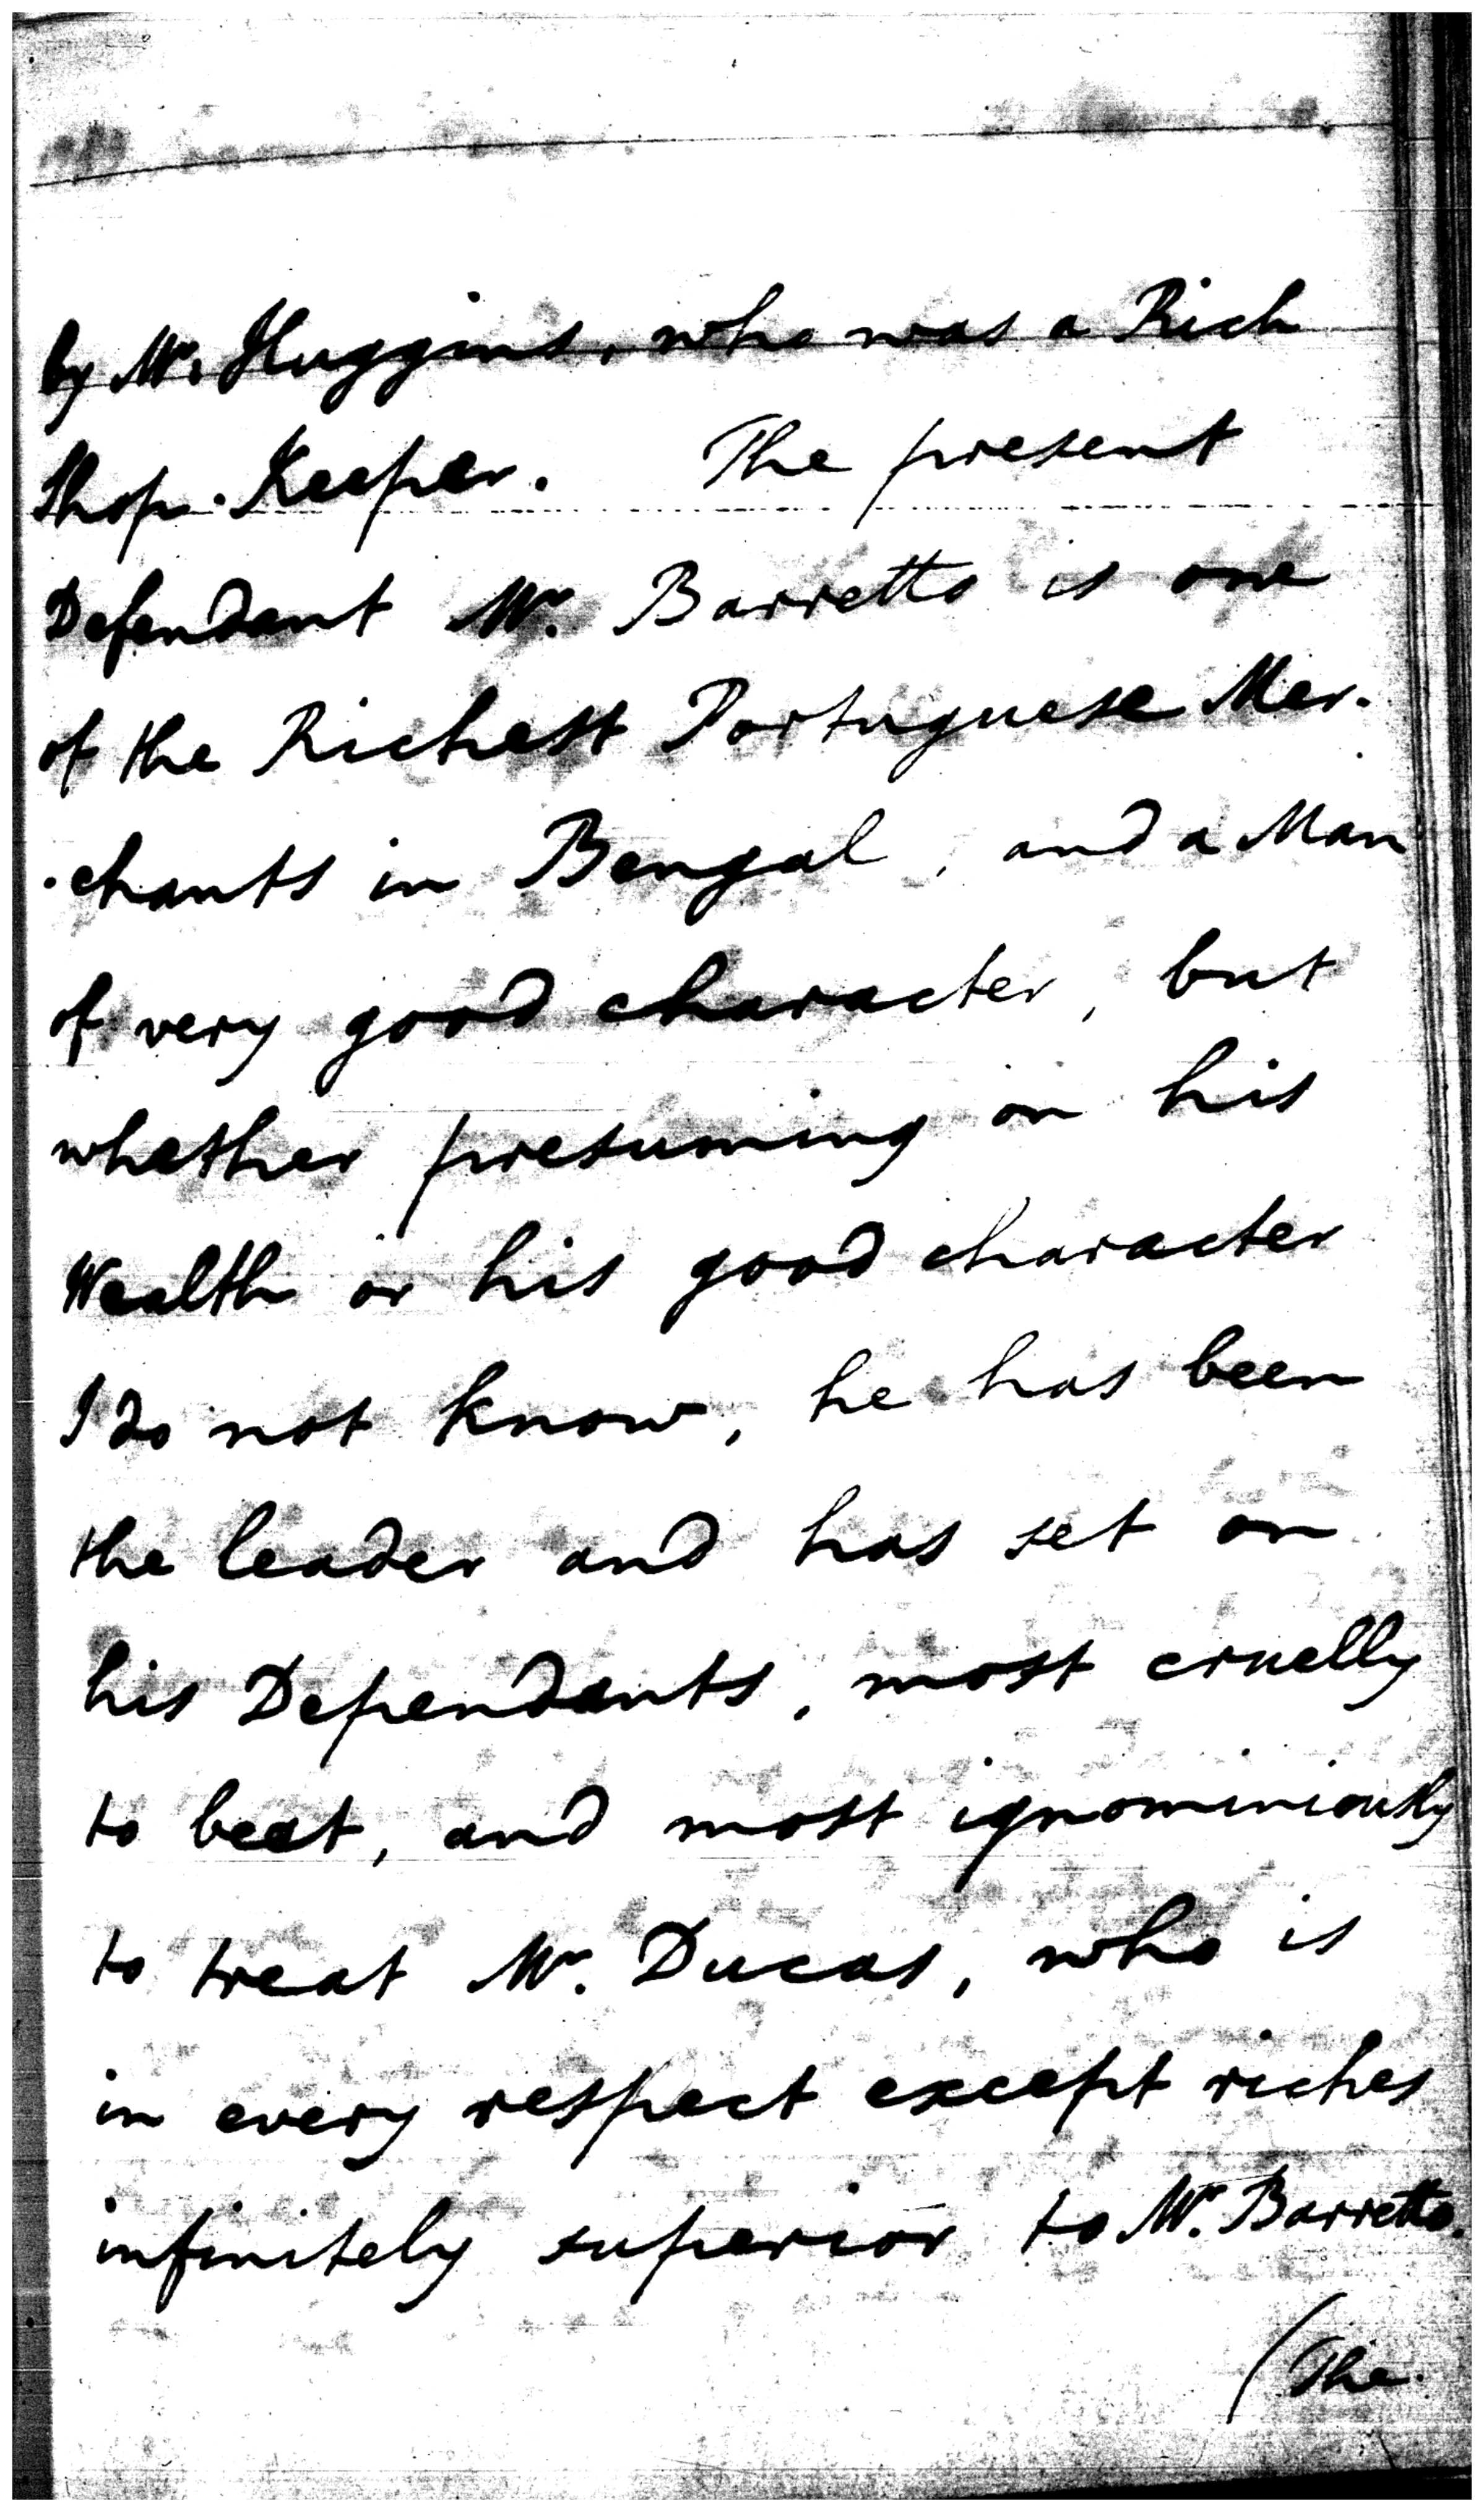 by Mr. Huggins, who was a Rich
Shop-Keeper. The present
Defendant Mr. Barretto is one
of the Richest Portuguese Mer-
-chants in Bengal, and a Man
of very good character, but
whether presuming on his
Wealth or his good character
I do not know, he has been
the leader and has set on
his Dependants, most cruelly
to beat, and most ignominiously
to treat Mr. Ducas, who is
in every respect except riches
infinitely superior to Mr. Barretto.
(The